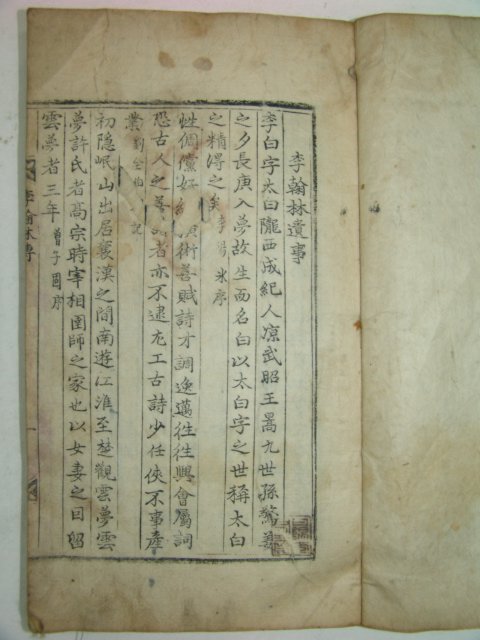 李翰林遺事
李白字太白隴西成紀人凉武昭王暠九世孫驚姜
之夕長庚入夢故生而名白以太白字之世稱太白
之精得之矣李陽氷序
性倜儻好術善賦詩才調逸邁徃徃興會屬詞
恐古人之善詩者亦不逮尤工古詩少任俠不事產
業劉全伯記
初隱岷山出居襄漢之間南遊江淮至楚觀雲夢雲
夢許氏者髙宗時宰相圉師之家也以女妻之因留
雲夢者三年曾子固序
李翰林傳